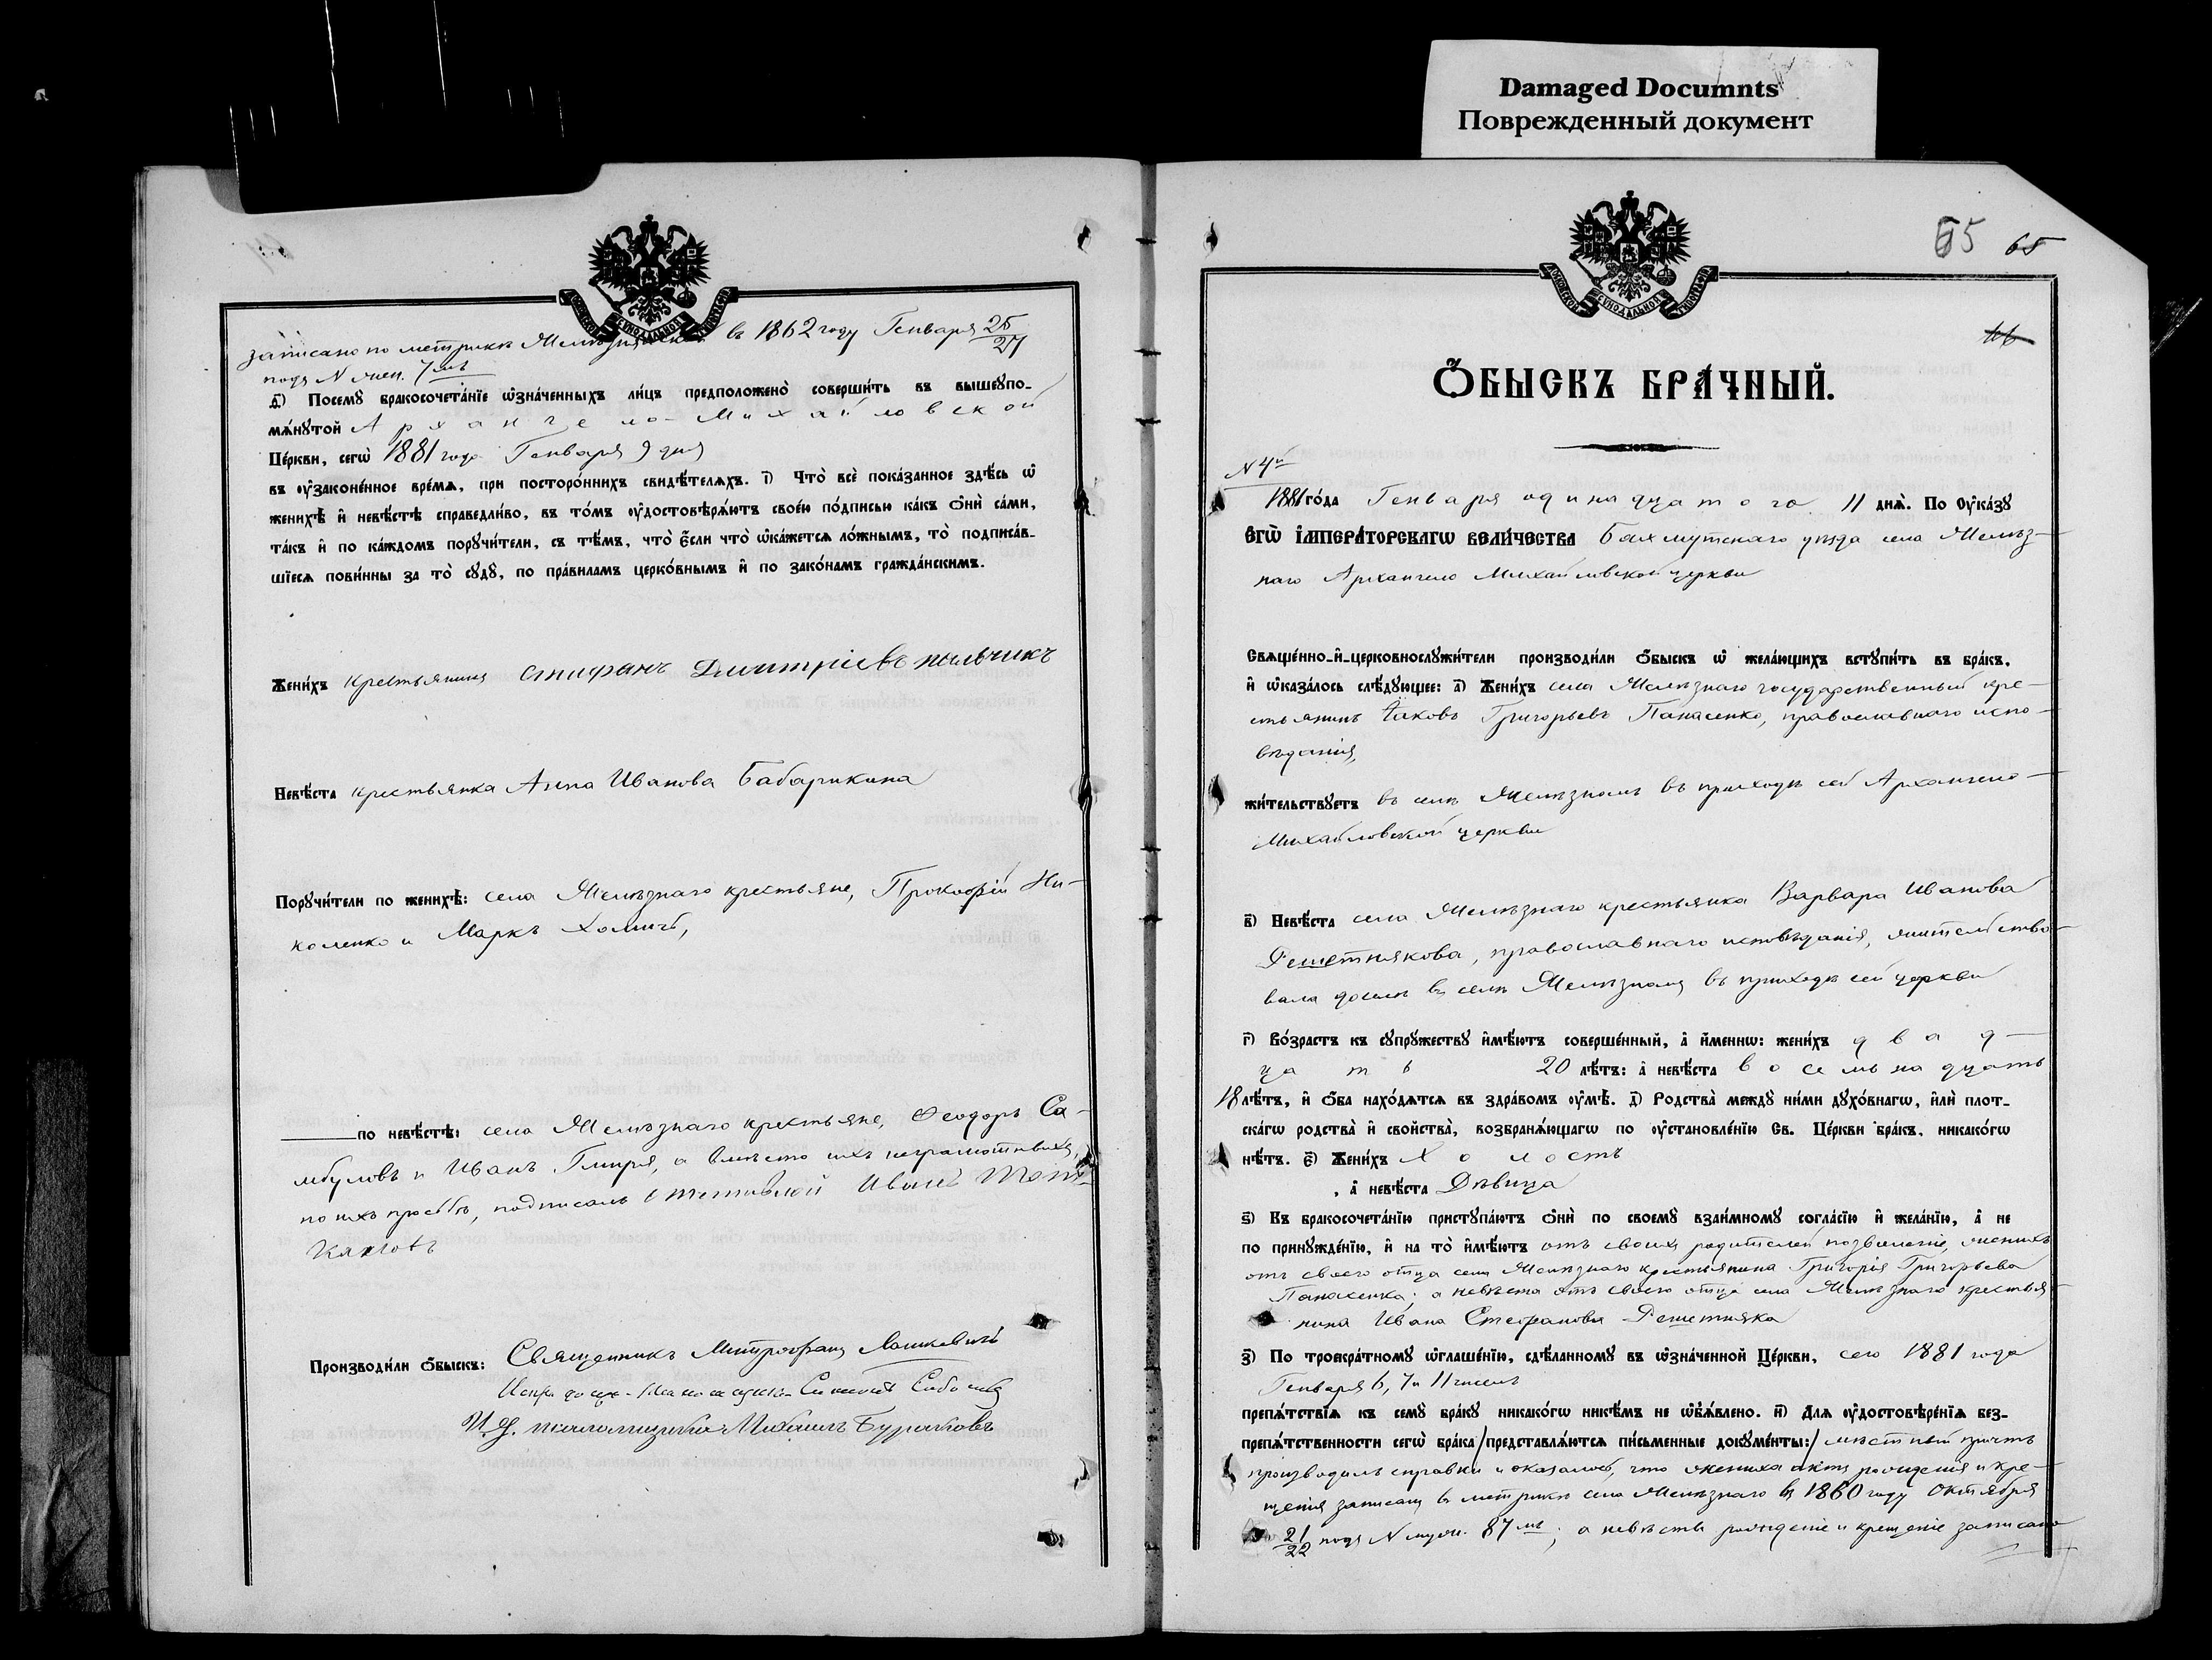 Damaged Documnts
Поврежденный документ
записано по метрикѣ въ 1862 году Генваря 25/27
подъ N жен. 7мъ
д҃) Посемꙋ бракосочета́нїе ѡ҆зна́ченныхъ ли́цъ предположено̀ соверши́ть въ вышеꙋпо-
мѧ́нꙋтой Архангело-Михайловской
Це́ркви, сегѡ̀ 1881 года Генваря 9 дня
въ ᲂу҆законе́нное вре́мѧ, при посторо́ннихъ свидѣ́телѧхъ. і҃) Что̀ всѐ пока́занное здѣ́сь ѡ҆
женихѣ̀ и҆ невѣ́стѣ справедли́во, въ то́мъ ᲂу҆достовѣрѧ́ютъ свое́ю по́дписью ка́къ ѻ҆нѝ са́ми,
та́къ и҆ по ка́ждомъ порꙋчи́тели, съ тѣ́мъ, что̀ є҆́сли что̀ ѡ҆ка́жетсѧ ло́жнымъ, то̀ подписа́в-
шїесѧ пови́нны за то̀ сꙋдꙋ̀, по пра́виламъ церко́внымъ и҆ по зако́намъ гражда́нскимъ.
Жени́хъ крестьянинъ Стифанъ Дмитріевъ пильчикъ
Невѣ́ста крестьянка Анна Иванова Бабарикина
Порꙋчи́тели по женихѣ̀: села Желѣзнаго крестьяне, Прокофій Ни-
коленко и Маркъ Хомичъ,
по невѣ́стѣ: села Желѣзнаго крестьяне, Феодоръ Са-
мбуловъ и Иванъ Гмиря, а вмѣсто ихъ неграмотныхъ,
по ихъ просьбѣ, подписалъ Иванъ
Производи́ли ѻ҆́быскъ: Священникъ Митрофанъ Лашкевичъ
И. д. псаломщика Михаилъ Бураковъ
МОСКОВСКОЙ СѴНОДАЛЬНОЙ ТИПОГРАФІИ
65 65
Ѻ҆́БЫСКЪ БРА́ЧНЫЙ.
N 4й
1881 го́да Генваря одинадцатого 11 днѧ̀. По ᲂу҆ка́зꙋ
ЄГѠ̀ І҆МПЕРА́ТОРСКАГѠ ВЕЛИ́ЧЕСТВА Бахмутскаго уѣзда села Желѣз-
наго Архангело Михайловской церкви
Свѧще́нно-и҆-церковнослꙋжи́тели производи́ли ѻ҆́быскъ ѡ҆ жела́ющихъ встꙋпи́ть въ бра́къ,
и҆ ѡ҆каза́лось слѣ́дꙋющее: а҃) Жени́хъ села Желѣзнаго государственный кре-
стьянинъ Іаковъ Григорьевъ Панасенко, православнаго испо-
вѣданія,
жи́тельствꙋетъ въ селѣ Желѣзномъ въ приходѣ сей Архангело-
Михайловской церкви
в҃) Невѣ́ста села Желѣзнаго крестьянка Варвара Иванова
Решетнякова, православнаго исповѣданія, жительство-
вала доселѣ въ селѣ Желѣзномъ въ приходѣ сей церкви
г҃) Во́зрастъ къ сꙋпрꙋ́жествꙋ и҆мѣ́ютъ соверше́нный, а҆ и҆́меннѡ: жени́хъ двад-
цать 20 лѣ́тъ: а҆ невѣ́ста восемьнадцать
18 лѣ́тъ, и҆ ѻ҆́ба нахо́дѧтсѧ въ здра́вомъ ᲂу҆мѣ̀. д҃) Родства̀ междꙋ̀ ни́ми дꙋхо́внагѡ, и҆лѝ плот-
ска́гѡ родства̀ и҆ свойства̀, возбранѧ́ющагѡ по ᲂу҆становле́нїю Св. Це́ркви бра́къ, никако́гѡ
нѣ́тъ. є҃) Жени́хъ Холостъ
, а҆ невѣ́ста Дѣвица
ѕ҃) Къ бракосочета́нїю пристꙋпа́ютъ ѻ҆нѝ по своемꙋ̀ взаи́мномꙋ согла́сїю и҆ жела́нїю, а҆ не
по принꙋжде́нїю, и҆ на то̀ и҆мѣ́ютъ отъ своихъ родителей позволеніе, женихъ
отъ своего отца села Желѣзнаго крестьянина Григорія Григорьева
Панасенка; а невѣста отъ своего отца села Желѣзнаго крестья-
нина Ивана Стефанова Решетняка
з҃) По троекра́тномꙋ ѡ҆глаше́нїю, сдѣ́ланномꙋ въ ѡ҆зна́ченной Це́ркви, сего 1881 года
Генваря 6, 7 и 11 чиселъ
препѧ́тствїѧ къ семꙋ̀ бра́кꙋ никако́гѡ никѣ́мъ не ѡ҆б̾ѧ́влено. и҃) Длѧ̀ ᲂу҆достовѣре́нїѧ без-
препѧ́тственности сегѡ̀ бра́ка /представлѧ́ютсѧ пи́сьменные докꙋме́нты:/ мѣстный причтъ
производилъ справки и оказалось, что жениха актъ рожденія и кре-
щенія записанъ въ метрикѣ села Желѣзнаго въ 1860 году Октября
21/22 подъ N муж. 87мъ; а невѣсты рожденіе и крещеніе записано